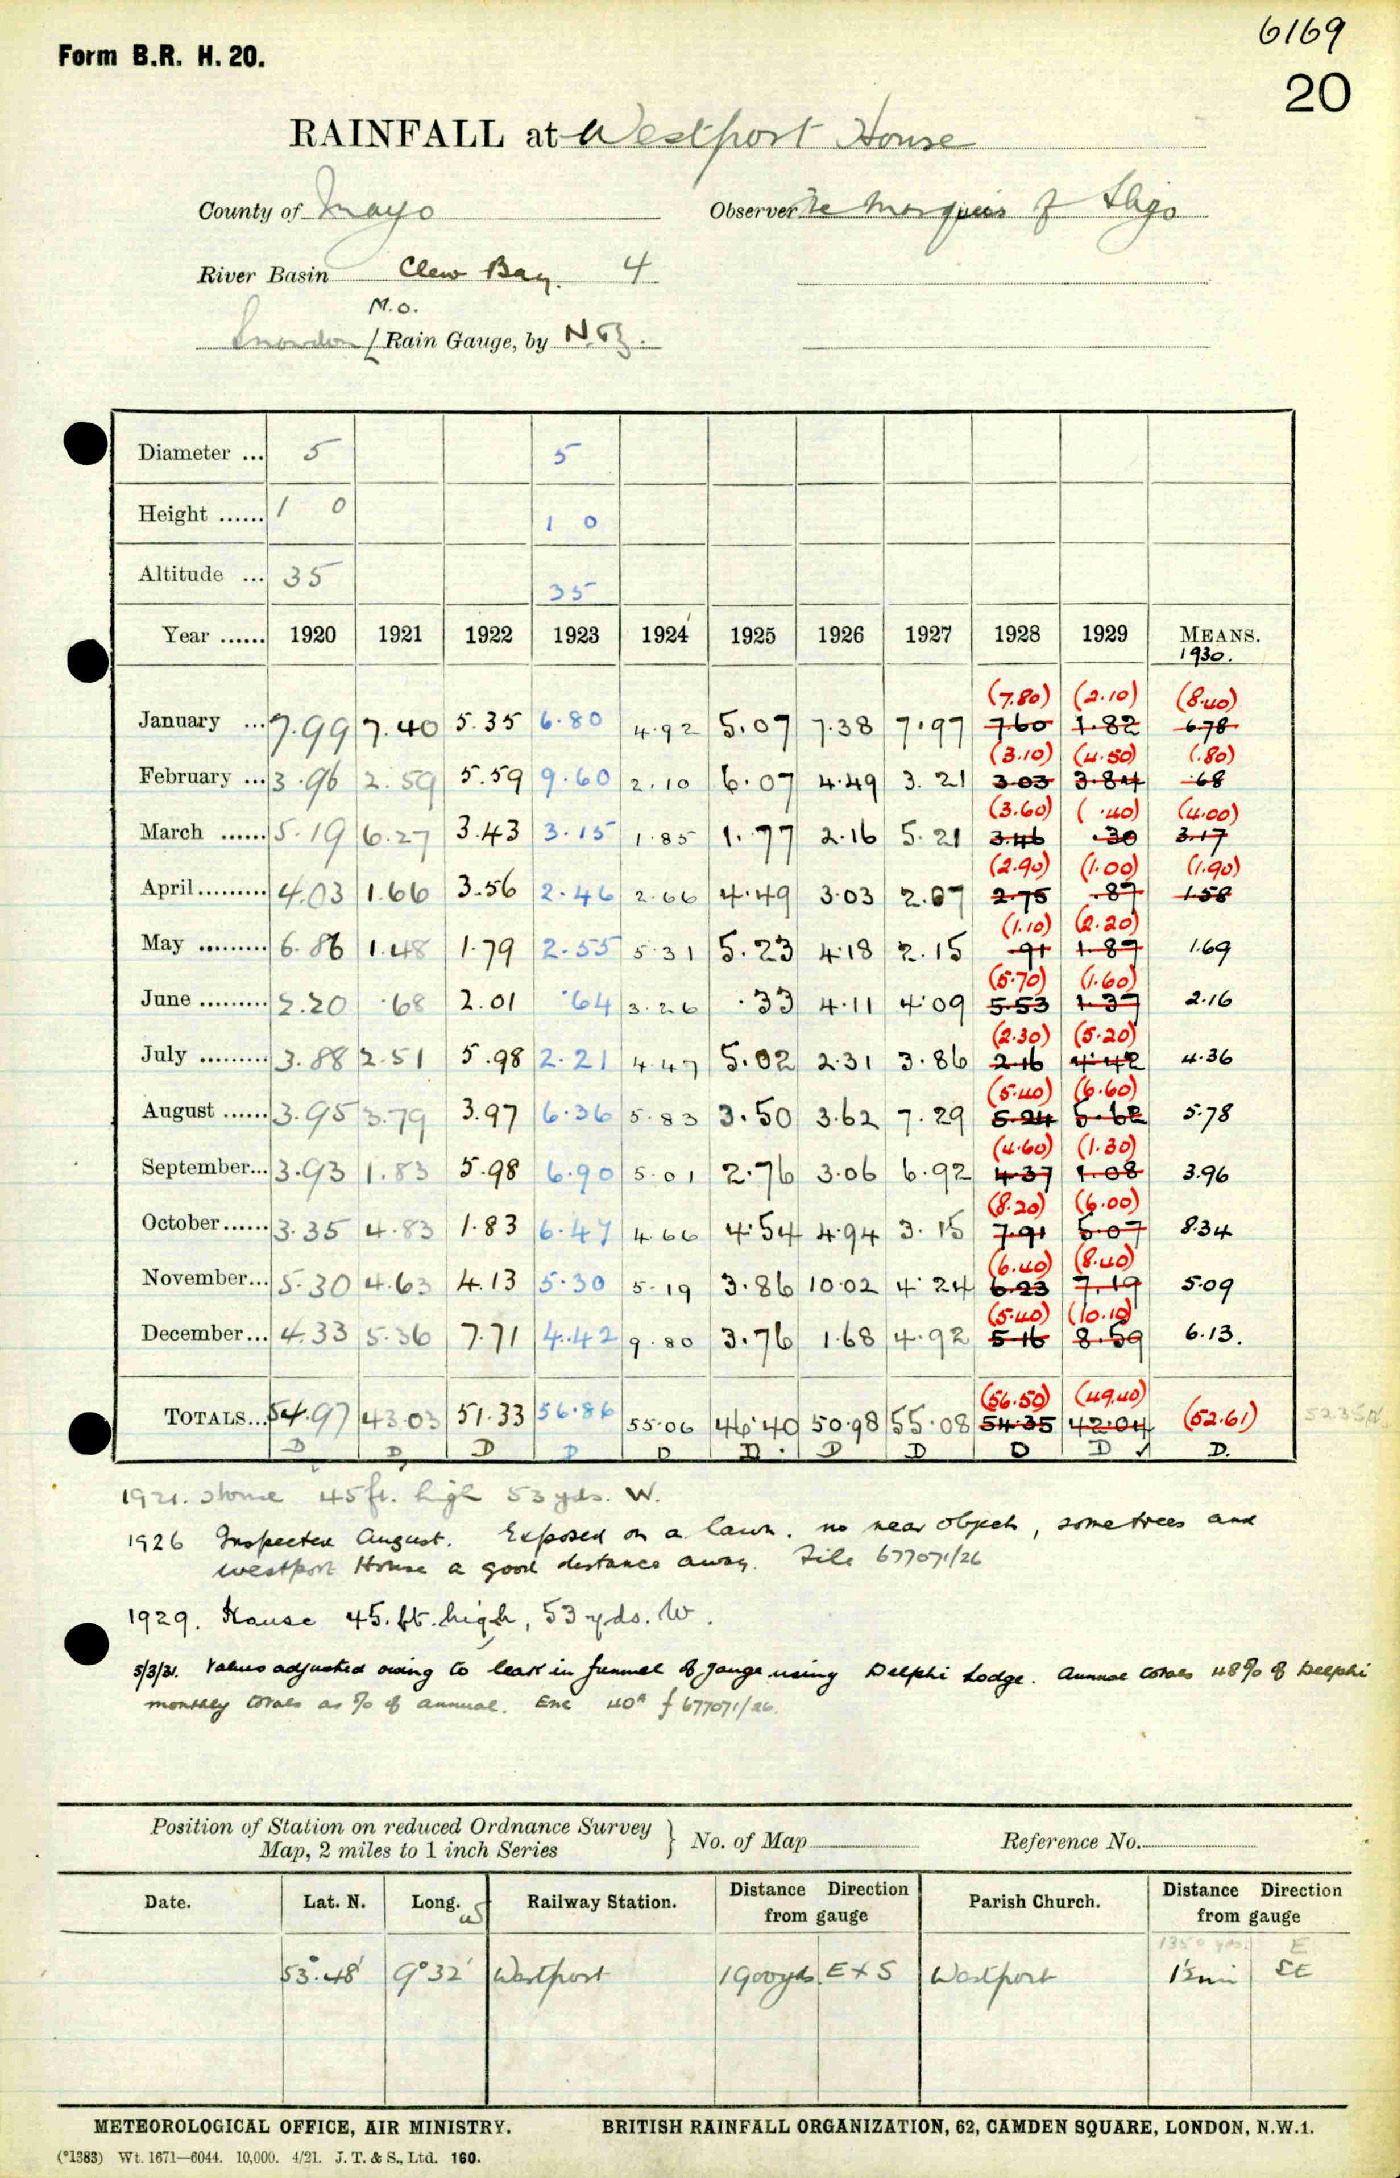 6169
Form B.R. H. 20.
20
RAINFALL at Westport House
County of Mayo Observer The Marquis of Sligo
River Basin Clew Bay. 4
M.O.
Snowdon / Rain Gauge, by N.&Z.
Diameter ... 5 5
Height ...... 1 0 1 0
Altitude ... 35 35
Year ...... 1920 1921 1922 1923 1924 1925 1926 1927 1928 1929 MEANS.
1930.
(7.80) (2.10) (8.40)
January ... 7.99 7.40 5.35 6.80 4.92 5.07 7.38 7.97 7.60 1.82 6.78
(3.10) (4.50) (.80)
February ... 3.96 2.59 5.59 9.60 2.10 6.07 4.49 3.21 3.03 3.84 .68
(3.60) (.40) (4.00)
March ...... 5.19 6.27 3.43 3.15 1.85 1.77 2.16 5.21 3.46 .30 3.17
(2.90) (1.00) (1.90)
April ......... 4.03 1.66 3.56 2.46 2.66 4.49 3.03 2.07 2.75 .87 1.58
(1.10) (2.20)
May ......... 6.86 1.48 1.79 2.55 5.31 5.23 4.18 2.15 .91 1.87 1.69
(5.70) (1.60)
June ......... 2.20 .68 2.01 .64 3.26 .33 4.11 4.09 5.53 1.37 2.16
(2.30) (5.20)
July ......... 3.88 2.51 5.98 2.21 4.47 5.02 2.31 3.86 2.16 4.42 4.36
(5.40) (6.60)
August ...... 3.95 3.79 3.97 6.36 5.83 3.50 3.62 7.29 5.24 5.62 5.78
(4.60) (1.30)
September... 3.93 1.83 5.98 6.90 5.01 2.76 3.06 6.92 4.37 1.08 3.96
(8.20) (6.00)
October...... 3.35 4.83 1.83 6.47 4.66 4.54 4.94 3.15 7.91 5.07 8.34
(6.40) (8.40)
November... 5.30 4.63 4.13 5.30 5.19 3.86 10.02 4.24 6.23 7.19 5.09
(5.40) (10.10)
December... 4.33 5.36 7.71 4.42 9.80 3.76 1.68 4.92 5.16 8.59 6.13.
(56.50) (49.40)
TOTALS... 54.97 43.03 51.33 56.86 55.06 46.40 50.98 55.08 54.35 42.04 (52.61)
D D D D D D. D D D D ✓ D.
1921. House 45 ft. high 53 yds. W.
1926 Inspected August. Exposed on a lawn. no near objects, some trees and
Westport House a good distance away. File 677071/26
1929. House 45. ft. high, 53 yds. W.
5/3/31. Values adjusted owing to leak in funnel of gauge using Delphi Lodge. Annual totals 48% of Delphi
monthly totals as % of annual. Enc 40A f 677071/26.
Position of Station on reduced Ordnance Survey
Map, 2 miles to 1 inch Series } No. of Map Reference No.
Date. Lat. N. Long. W Railway Station. Distance Direction from gauge Parish Church. Distance Direction from gauge
1350 yds. E
53°.48' 9°32' Westport 1900yds. E x S Westport 1½mi SE
METEOROLOGICAL OFFICE, AIR MINISTRY. BRITISH RAINFALL ORGANIZATION, 62, CAMDEN SQUARE, LONDON, N.W.1.
(*1383) Wt. 1671—6044. 10,000. 4/21. J. T. & S., Ltd. 160.